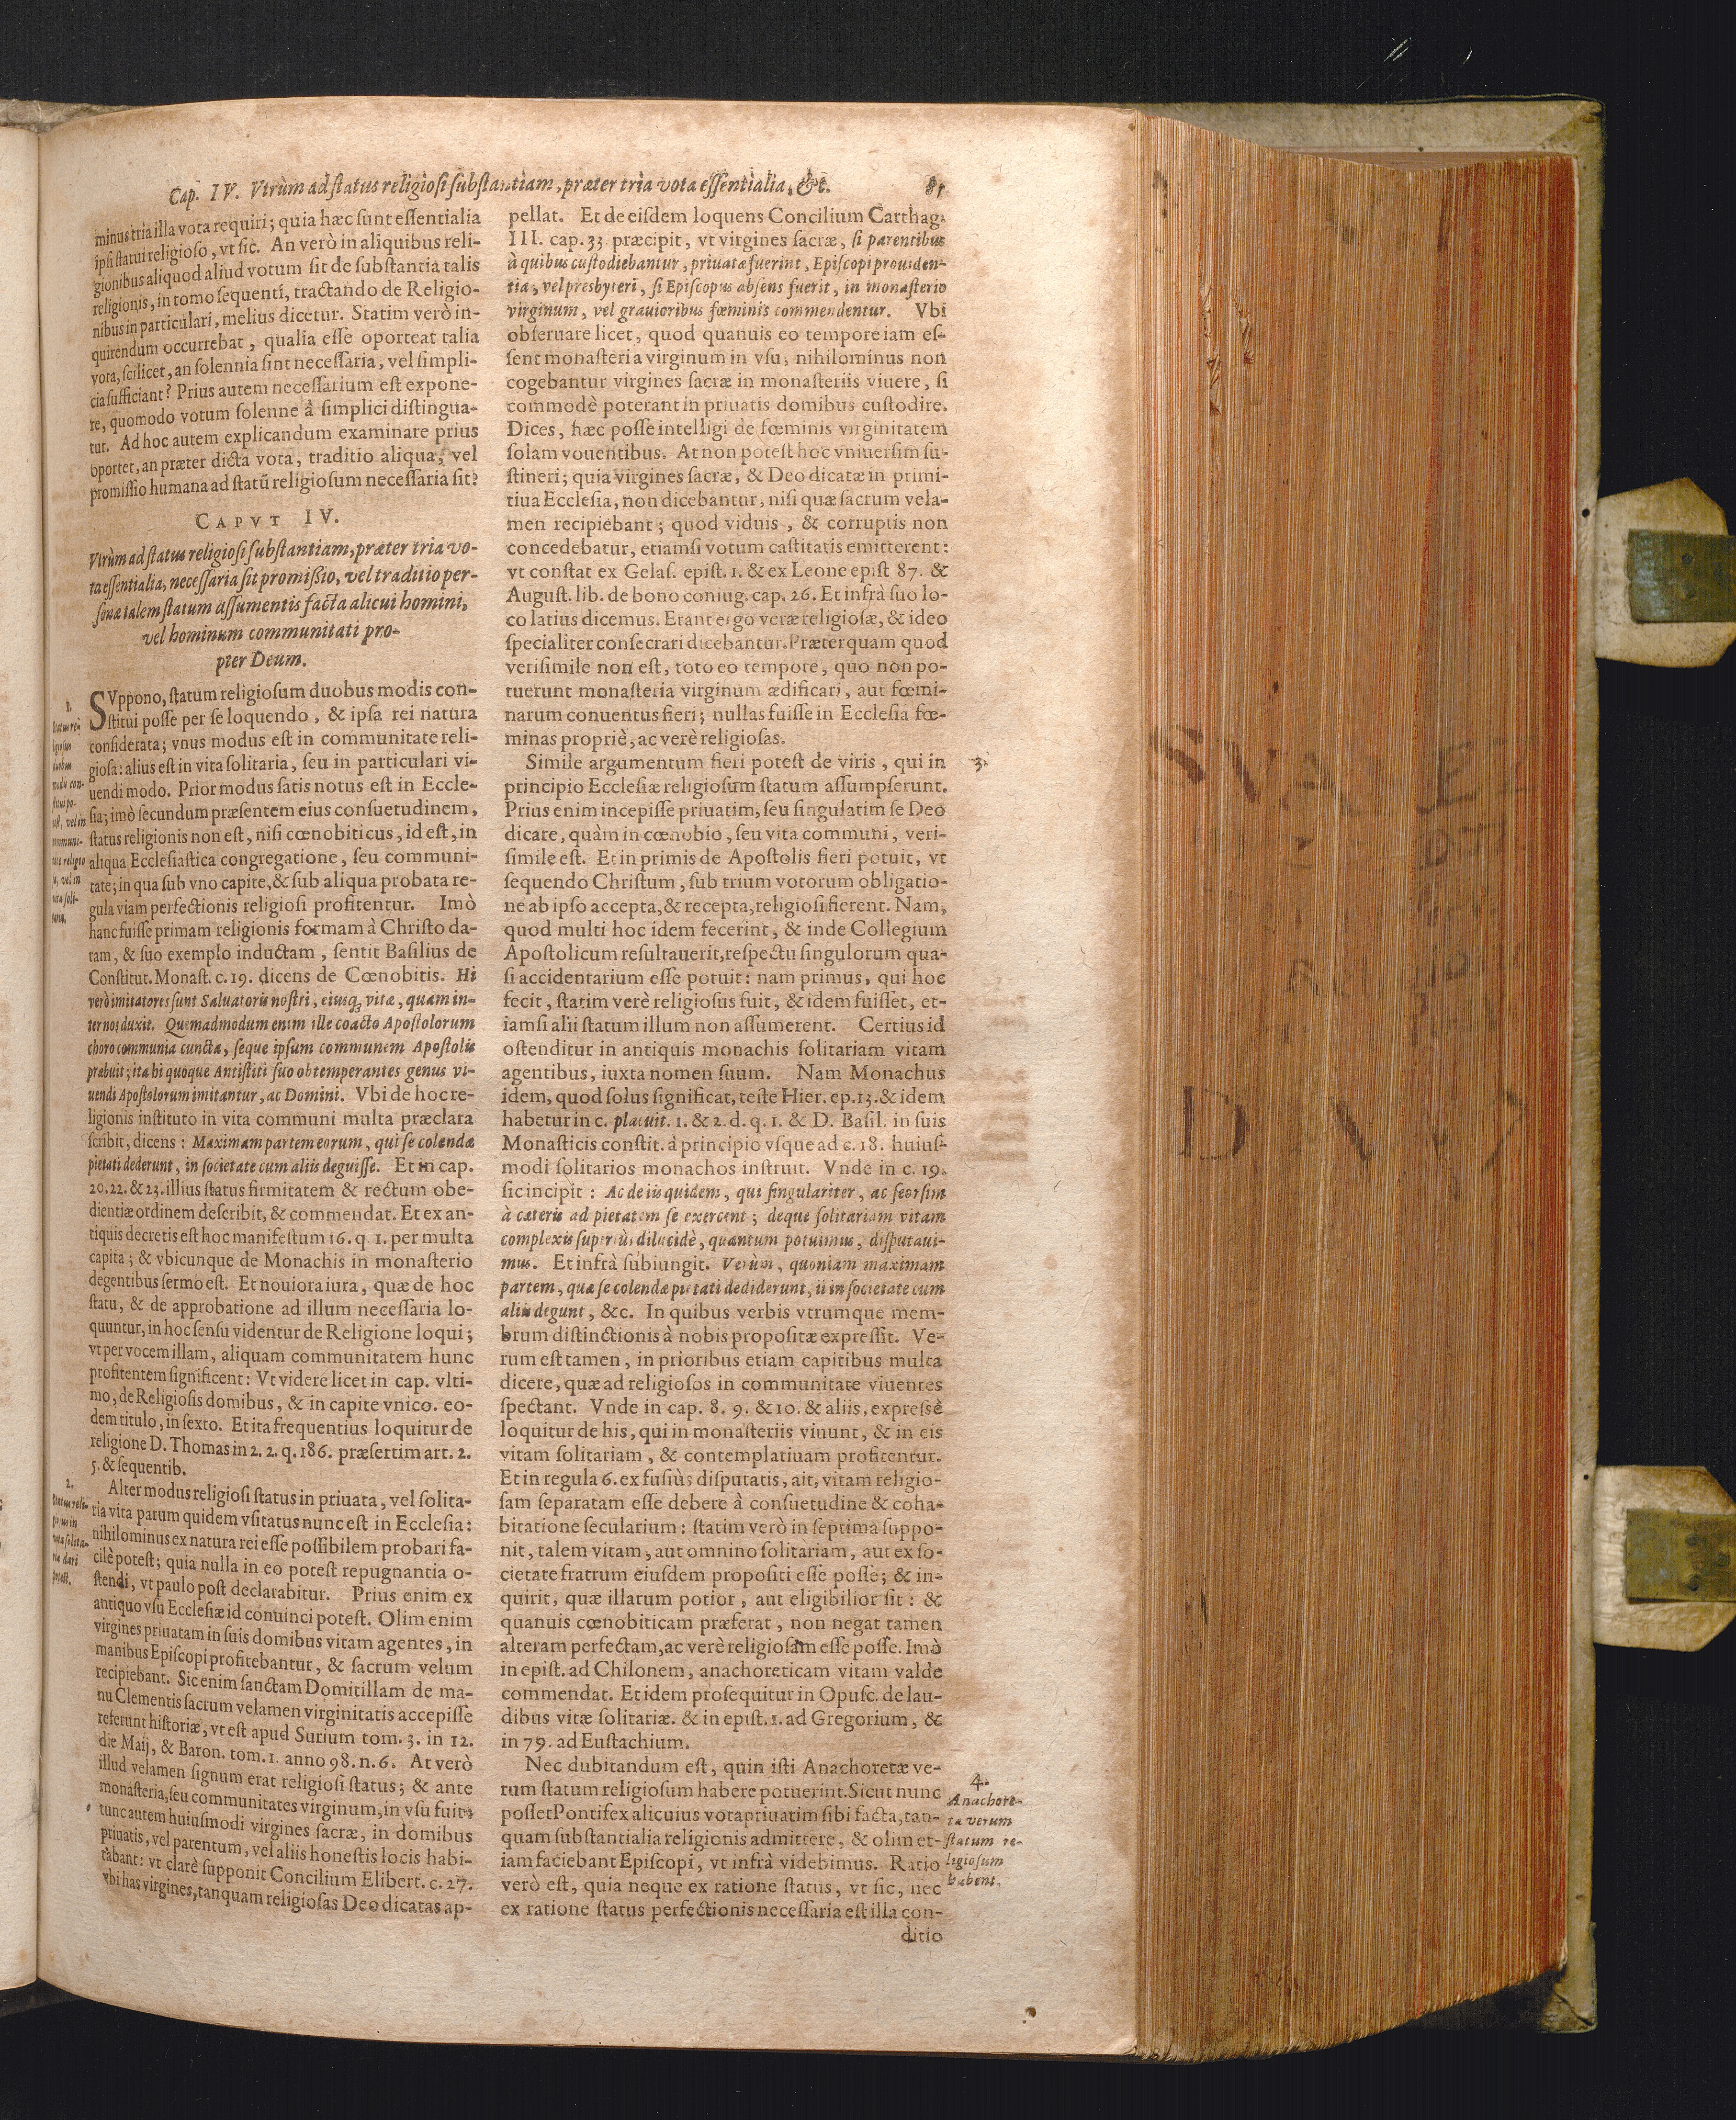 Cap. IV. Vtrùm ad status religiosi substantiam, præter tria vota essentialia, &c. 81
minus tria illa vota requiri; quia hæc sunt essentialia
ipsi statui religioso, vt sic. An verò in aliquibus reli-
gionibus aliquod aliud votum sit de substantia talis
religionis, in tomo sequenti, tractando de Religio-
nibus in particulari, melius dicetur. Statim verò in-
quirendum occurrebat, qualia esse oporteat talia
vota, scilicet, an solennia sint necessaria, vel simpli-
cia sufficiant? Prius autem necessarium est expone-
re, quomodo votum solenne à simplici distingua-
tur. Ad hoc autem explicandum examinare prius
oportet, an præter dicta vota, traditio aliqua, vel
promissio humana ad statū religiosum necessaria sit?
CAPVT IV.
Vtrùm ad status religiosi substantiam, præter tria vo-
ta essentialia, necessaria sit promißio, vel traditio per-
sonæ talem statum assumentis facta alicui homini,
vel hominum communitati pro-
pter Deum.
1.
SVppono, statum religiosum duobus modis con-
stitui posse per se loquendo, & ipsa rei natura
considerata; vnus modus est in communitate reli-
giosa: alius est in vita solitaria, seu in particulari vi-
uendi modo. Prior modus satis notus est in Eccle-
sia; imò secundum præsentem eius consuetudinem,
status religionis non est, nisi cœnobiticus, id est, in
aliqua Ecclesiastica congregatione, seu communi-
tate; in qua sub vno capite, & sub aliqua probata re-
gula viam perfectionis religiosi profitentur. Imò
hanc fuisse primam religionis formam à Christo da-
tam, & suo exemplo inductam, sentit Basilius de
Constitut. Monast. c. 19. dicens de Cœnobitis. Hi
verò imitatores sunt Saluatoris nostri, eiusq; vitæ, quam in-
ter nos duxit. Quemadmodum enim ille coacto Apostolorum
choro communia cuncta, seque ipsum communem Apostolis
præbuit; ita hi quoque Antistiti suo obtemperantes genus vi-
uendi Apostolorum imitantur, ac Domini. Vbi de hoc re-
ligionis instituto in vita communi multa præclara
scribit, dicens: Maximam partem eorum, qui se colendæ
pietati dederunt, in societate cum aliis deguisse. Et in cap.
20. 22. & 23. illius status firmitatem & rectum obe-
dientiæ ordinem describit, & commendat. Et ex an-
tiquis decretis est hoc manifestum 16. q. 1. per multa
capita; & vbicunque de Monachis in monasterio
degentibus sermo est. Et nouiora iura, quæ de hoc
statu, & de approbatione ad illum necessaria lo-
quuntur, in hoc sensu videntur de Religione loqui;
vt per vocem illam, aliquam communitatem hunc
profitentem significent: Vt videre licet in cap. vlti-
mo, de Religiosis domibus, & in capite vnico. eo-
dem titulo, in sexto. Et ita frequentius loquitur de
religione D. Thomas in 2. 2. q. 186. præsertim art. 2.
5. & sequentib.
2.
Alter modus religiosi status in priuata, vel solita-
ria vita parum quidem vsitatus nunc est in Ecclesia:
nihilominus ex natura rei esse possibilem probari fa-
cilè potest; quia nulla in eo potest repugnantia o-
stendi, vt paulo post declarabitur. Prius enim ex
antiquo vsu Ecclesiæ id conuinci potest. Olim enim
virgines priuatam in suis domibus vitam agentes, in
manibus Episcopi profitebantur, & sacrum velum
recipiebant. Sic enim sanctam Domitillam de ma-
nu Clementis sacrum velamen virginitatis accepisse
referunt historiæ, vt est apud Surium tom. 3. in 12.
die Maij, & Baron. tom. 1. anno 98. n. 6. At verò
illud velamen signum erat religiosi status; & ante
monasteria, seu communitates virginum, in vsu fuit:
tunc autem huiusmodi virgines sacræ, in domibus
priuatis, vel parentum, vel aliis honestis locis habi-
tabant: vt clarè supponit Concilium Elibert. c. 27.
vbi has virgines, tanquam religiosas Deo dicatas ap-
pellat. Et de eisdem loquens Concilium Carthag.
III. cap. 33. præcipit, vt virgines sacræ, si parentibus
à quibus custodiebantur, priuatæ fuerint, Episcopi prouiden-
tia, vel presbyteri, si Episcopus absens fuerit, in monasterio
virginum, vel grauioribus fœminis commendentur. Vbi
obseruare licet, quod quanuis eo tempore iam es-
sent monasteria virginum in vsu, nihilominus non
cogebantur virgines sacræ in monasteriis viuere, si
commodè poterant in priuatis domibus custodire.
Dices, hæc posse intelligi de fœminis virginitatem
solam vouentibus. At non potest hoc vniuersim su-
stineri; quia virgines sacræ, & Deo dicatæ in primi-
tiua Ecclesia, non dicebantur, nisi quæ sacrum vela-
men recipiebant; quod viduis, & corruptis non
concedebatur, etiamsi votum castitatis emitterent:
vt constat ex Gelas. epist. 1. & ex Leone epist 87. &
August. lib. de bono coniug. cap. 26. Et infrà suo lo-
co latius dicemus. Erant ergo veræ religiosæ, & ideo
specialiter consecrari dicebantur. Præterquam quod
verisimile non est, toto eo tempore, quo non po-
tuerunt monasteria virginum ædificari, aut fœmi-
narum conuentus fieri; nullas fuisse in Ecclesia fœ-
minas propriè, ac verè religiosas.
Simile argumentum fieri potest de viris, qui in 3.
principio Ecclesiæ religiosum statum assumpserunt.
Prius enim incepisse priuatim, seu singulatim se Deo
dicare, quàm in cœnobio, seu vita communi, veri-
simile est. Et in primis de Apostolis fieri potuit, vt
sequendo Christum, sub trium votorum obligatio-
ne ab ipso accepta, & recepta, religiosi fierent. Nam,
quod multi hoc idem fecerint, & inde Collegium
Apostolicum resultauerit, respectu singulorum qua-
si accidentarium esse potuit: nam primus, qui hoc
fecit, statim verè religiosus fuit, & idem fuisset, et-
iamsi alii statum illum non assumerent. Certius id
ostenditur in antiquis monachis solitariam vitam
agentibus, iuxta nomen suum. Nam Monachus
idem, quod solus significat, teste Hier. ep. 13. & idem
habetur in c. placuit. 1. & 2. d. q. 1. & D. Basil. in suis
Monasticis constit. à principio vsque ad c. 18. huius-
modi solitarios monachos instruit. Vnde in c. 19.
sic incipit: Ac de iis quidem, qui singulariter, ac seorsim
à cæteris ad pietatem se exercent; deque solitariam vitam
complexis superiùs dilucidè, quantum potuimus, disputaui-
mus. Et infrà subiungit. Verùm, quoniam maximam
partem, quæ se colendæ pietati dediderunt, ii in societate cum
aliis degunt, &c. In quibus verbis vtrumque mem-
brum distinctionis à nobis propositæ expressit. Ve-
rum est tamen, in prioribus etiam capitibus multa
dicere, quæ ad religiosos in communitate viuentes
spectant. Vnde in cap. 8. 9. & 10. & aliis, expressè
loquitur de his, qui in monasteriis viuunt, & in eis
vitam solitariam, & contemplatiuam profitentur.
Et in regula 6. ex fusiùs disputatis, ait, vitam religio-
sam separatam esse debere à consuetudine & coha-
bitatione secularium: statim verò in septima suppo-
nit, talem vitam, aut omnino solitariam, aut ex so-
cietate fratrum eiusdem propositi esse posse; & in-
quirit, quæ illarum potior, aut eligibilior sit: &
quanuis cœnobiticam præferat, non negat tamen
alteram perfectam, ac verè religiosam esse posse. Imò
in epist. ad Chilonem, anachoreticam vitam valde
commendat. Et idem prosequitur in Opusc. de lau-
dibus vitæ solitariæ. & in epist. 1. ad Gregorium, &
in 79. ad Eustachium.
Nec dubitandum est, quin isti Anachoretæ ve-
rum statum religiosum habere potuerint. Sicut nunc
posset Pontifex alicuius vota priuatim sibi facta, tan-
quam substantialia religionis admittere, & olim et-
iam faciebant Episcopi, vt infrà videbimus. Ratio
verò est, quia neque ex ratione status, vt sic, nec
ex ratione status perfectionis necessaria est illa con-
ditio
4.
Anachore-
ta verum
statum re-
ligiosum
habent.